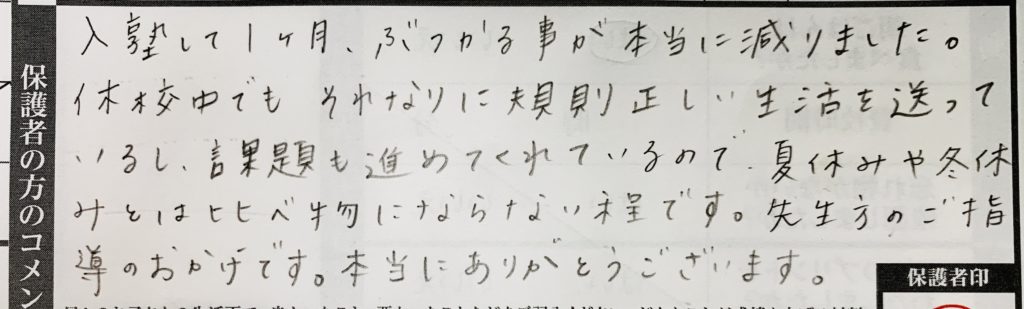 保護者の方のコメン
入塾して1ヶ月、ぶつかる事が本当に減りました。
休校中でも それなりに規則正しい生活を送って
いるし、課題も進めてくれているので、夏休みや冬休
みとは比べ物にならない程です。先生方のご指
導のおかげです。本当にありがとうございます。
保護者印